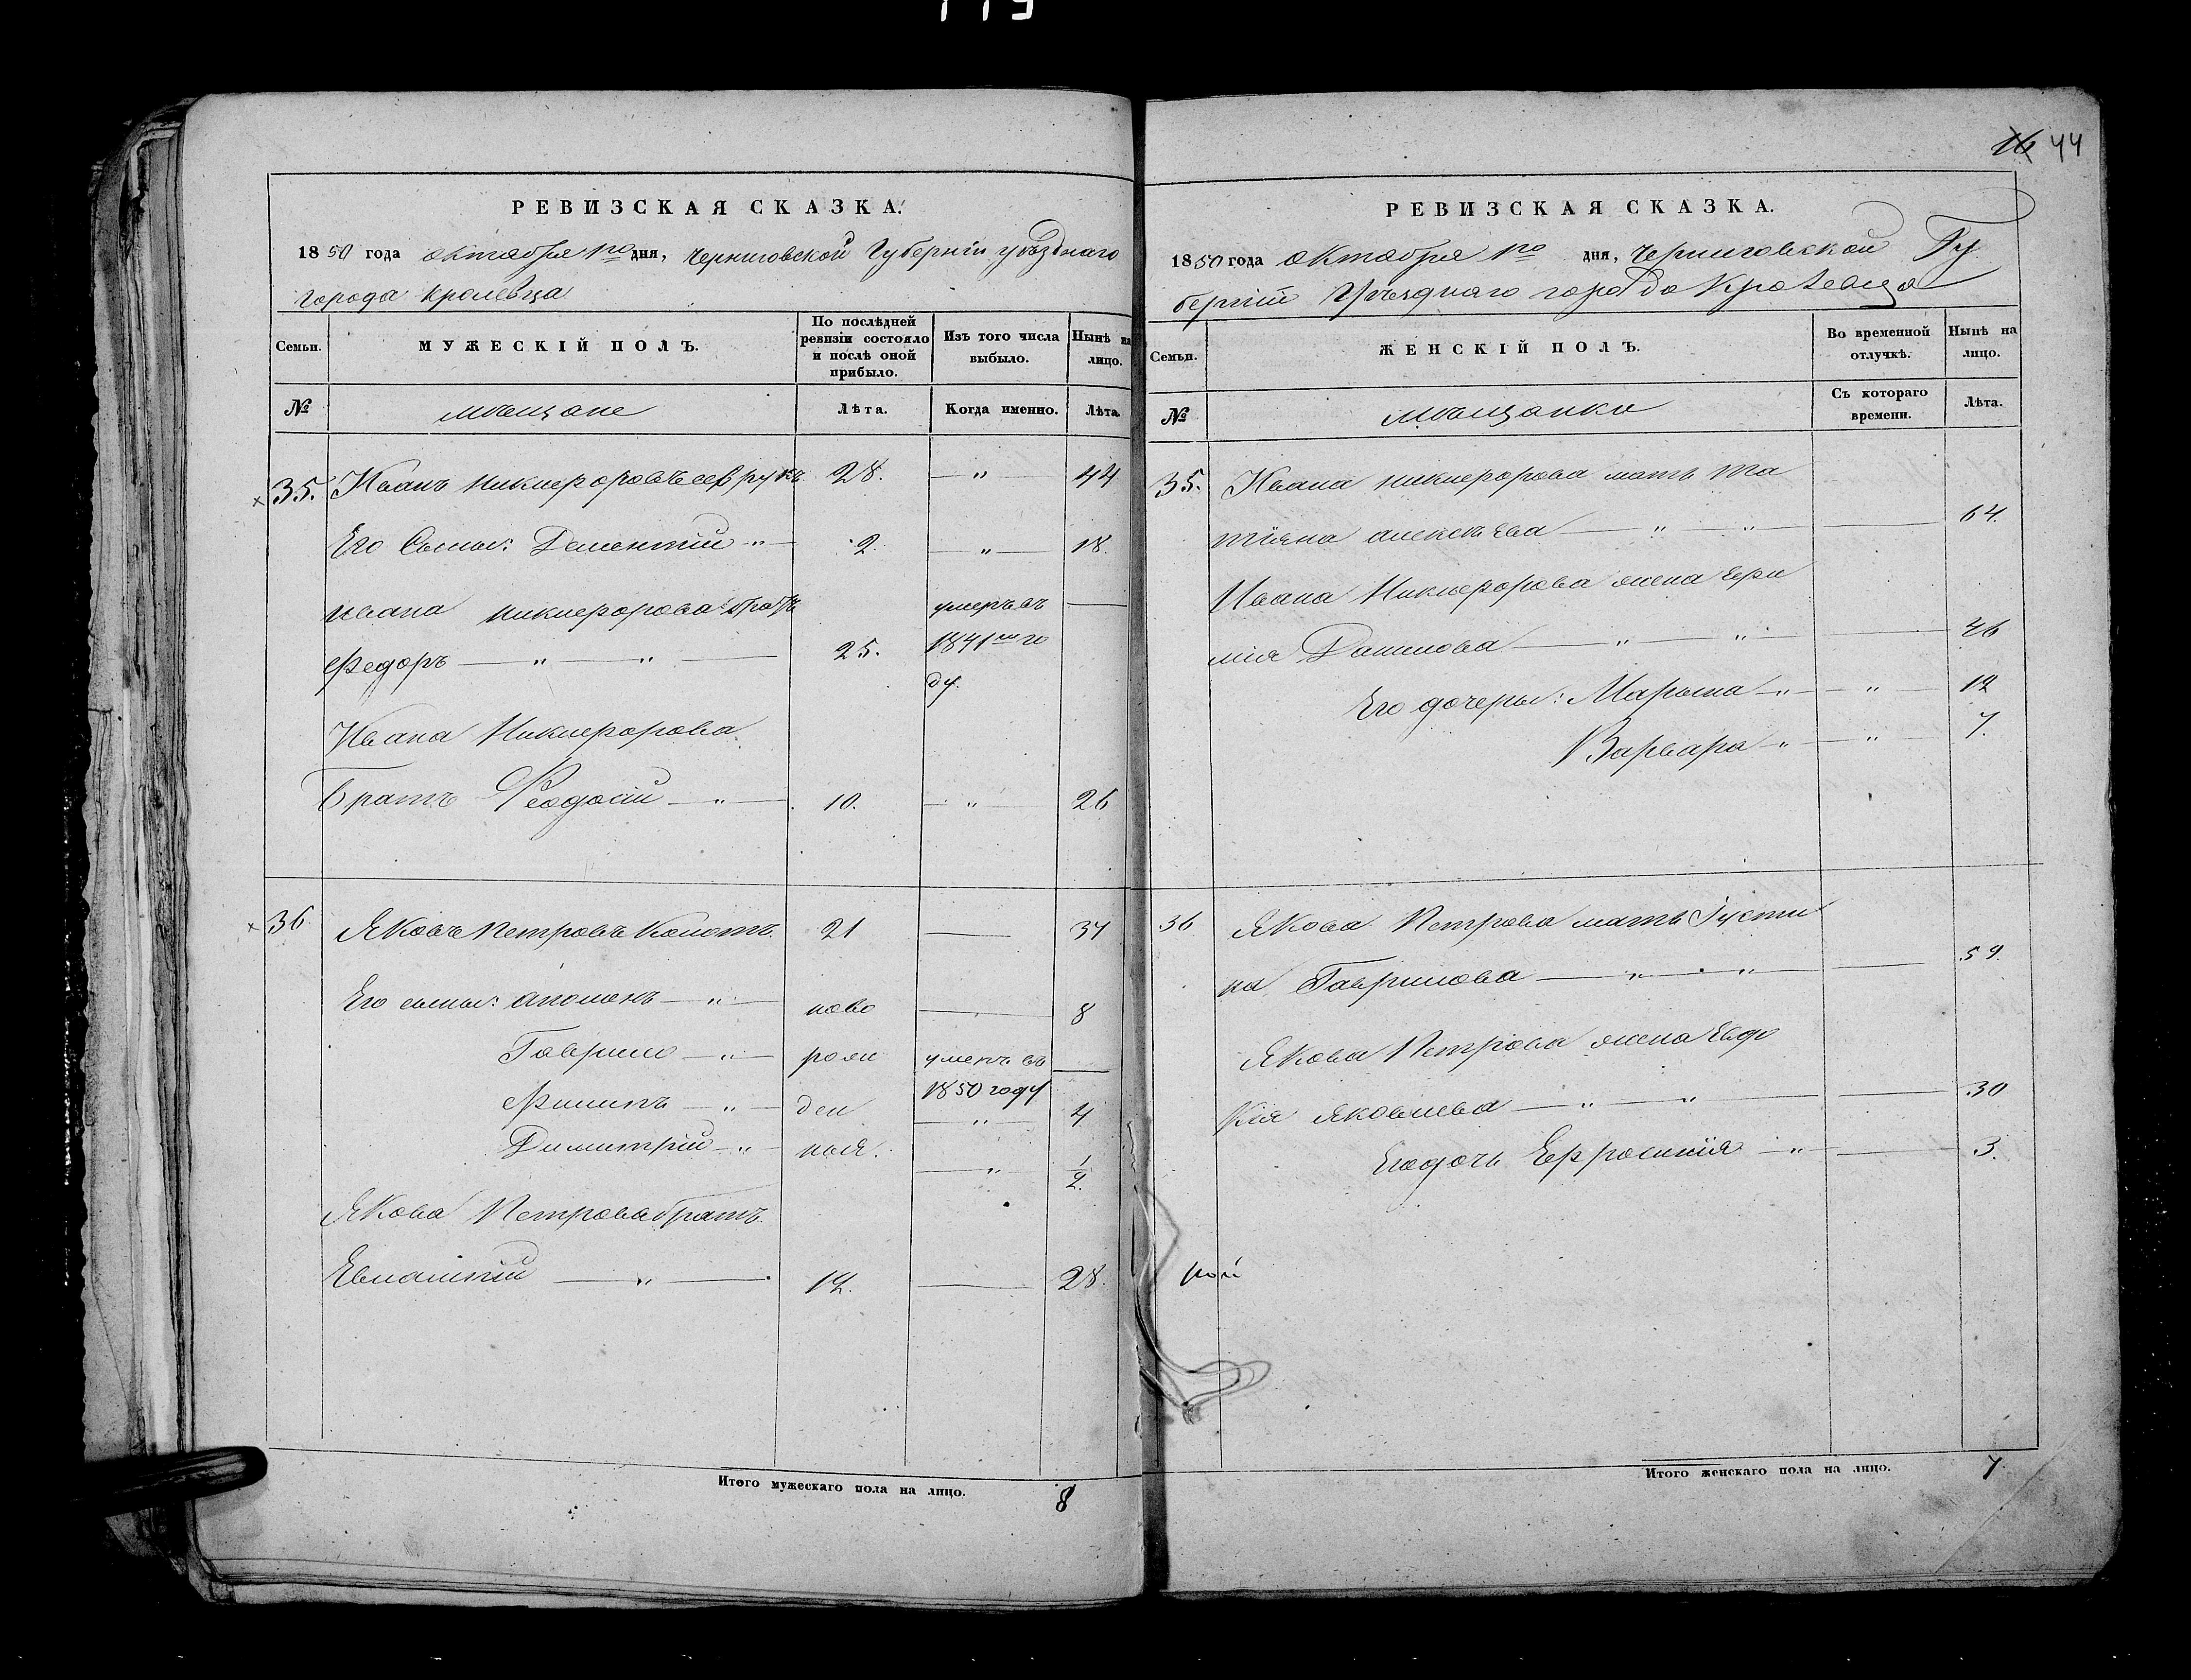 16 44
РЕВИЗСКАЯ СКАЗКА.
1850 года октября 1го дня, Черниговской Губернiи уѣзднаго
города Кролевца
Семьи.
МУЖЕСКIЙ ПОЛЪ.
По послѣдней ревизiи состояло и послѣ оной прибыло.
Изъ того числа выбыло.
Нынѣ на лицо.
№
мѣщане
Лѣта.
Когда именно.
Лѣта.
35. Иванъ Никифоровъ Севрукъ 28. — " — 44
Его Сыны: Дементiй — " — 2. — " — 18.
Ивана Никифорова братъ умеръ въ —
Федоръ — " — " — 25. 1841мъ го
ду.
Ивана Никифорова
братъ Феодосiй — " — 10. — " 26
36 Яковъ Петровъ Копотъ. 21 — 37
Его сыны: Аполонъ — " — ново — 8
Гаврило — " — рожд умеръ въ —
1850 году
Филипъ — " — ден — " — 4
Димитрiй — " — ныя. — " — 1/2
Якова Петрова братъ
Евлампiй — " — 12. — 28.
Итого мужескаго пола на лицо. 8
РЕВИЗСКАЯ СКАЗКА.
1850 года октября 1го дня, Черниговской Гу
бернiи Уѣзднаго города Кролевца
Семьи.
ЖЕНСКIЙ ПОЛЪ.
Во временной отлучкѣ.
Нынѣ на лицо.
№
мѣщанки
Съ котораго времени.
Лѣта.
35. Ивана Никифорова мать Та
тiяна Алексѣева — " — " — — 64.
Ивана Никифорова жена Ефи
мiя Данилова — " — " — — 46
Его дочеры: Марьяна — " — — " — 12
Варвара — " — — " — 7.
36 Якова Петрова мать Iусти
на Гаврилова — " — " — — 59.
Якова Петрова жена Евдо
кiя Яковлева — " — " — — 30
Его дочь Ефросинiя — " — — 3.
кой
Итого женскаго пола на лицо. 7